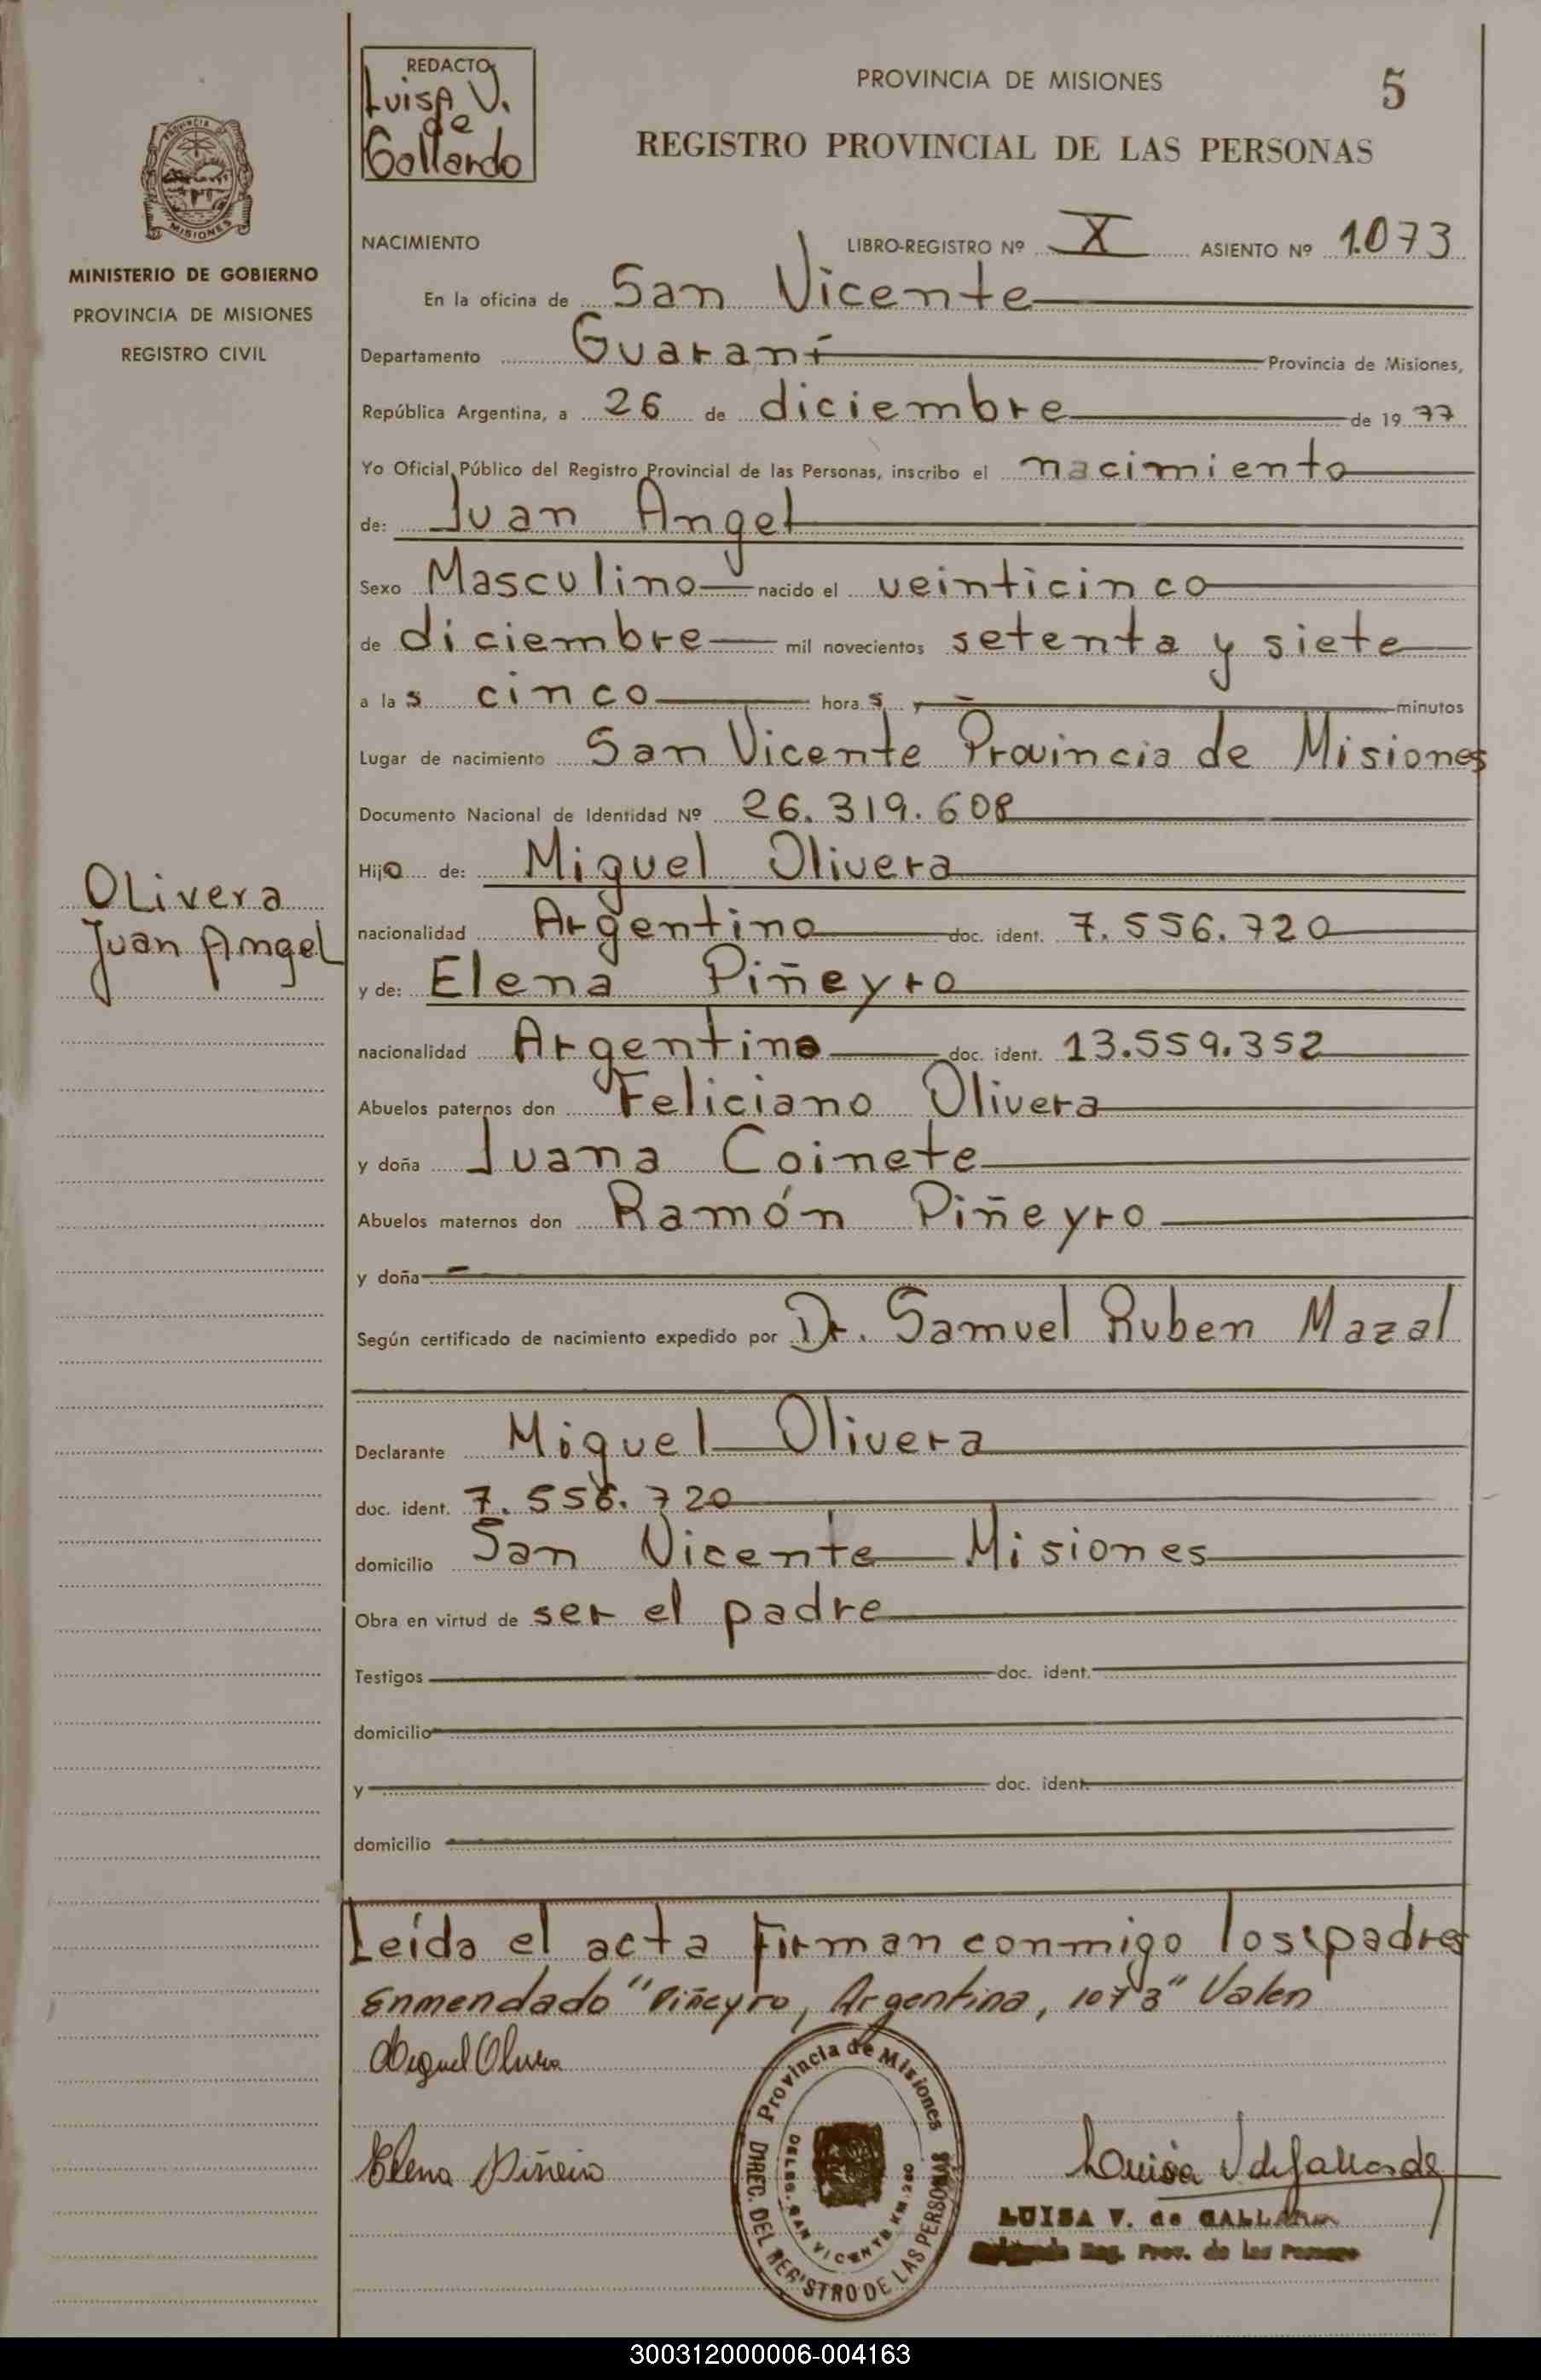 REDACTO
Luisa V.
de
Gallardo
PROVINCIA DE MISIONES
5
REGISTRO PROVINCIAL DE LAS PERSONAS
MISIONES
MINISTERIO DE GOBIERNO
PROVINCIA DE MISIONES
REGISTRO CIVIL
NACIMIENTO LIBRO-REGISTRO Nº X ASIENTO Nº 1.073
En la oficina de San Vicente
Departamento Guaraní Provincia de Misiones,
República Argentina, a 26 de diciembre de 1977
Yo Oficial Público del Registro Provincial de las Personas, inscribo el nacimiento
de: Juan Angel
Sexo Masculino nacido el veinticinco
de diciembre mil novecientos setenta y siete
a las cinco horas y - minutos
Lugar de nacimiento San Vicente Provincia de Misiones
Documento Nacional de Identidad Nº 26.319.608
Hijo de: Miguel Olivera
Olivera
Juan Angel
nacionalidad Argentino doc. ident. 7.556.720
y de: Elena Piñeyro
nacionalidad Argentina doc. ident. 13.559.352
Abuelos paternos don Feliciano Olivera
y doña Juana Coimete
Abuelos maternos don Ramón Piñeyro
y doña -
Según certificado de nacimiento expedido por Dr. Samuel Ruben Mazal
Declarante Miguel Olivera
doc. ident. 7.556.720
domicilio San Vicente Misiones
Obra en virtud de ser el padre
Testigos doc. ident.
domicilio
y doc. ident.
domicilio
Leída el acta firman conmigo los padres
Enmendado "Piñeyro, Argentina, 1073" Valen
Miguel Olivera
Elena Piñeiro
Provincia de Misiones
DIREC. DEL REGISTRO DE LAS PERSONAS
DELEG. SAN VICENTE KM. 260
Luisa V de Gallardo
LUISA V. de GALLARDO
Reg. Prov. de las Personas
300312000006-004163